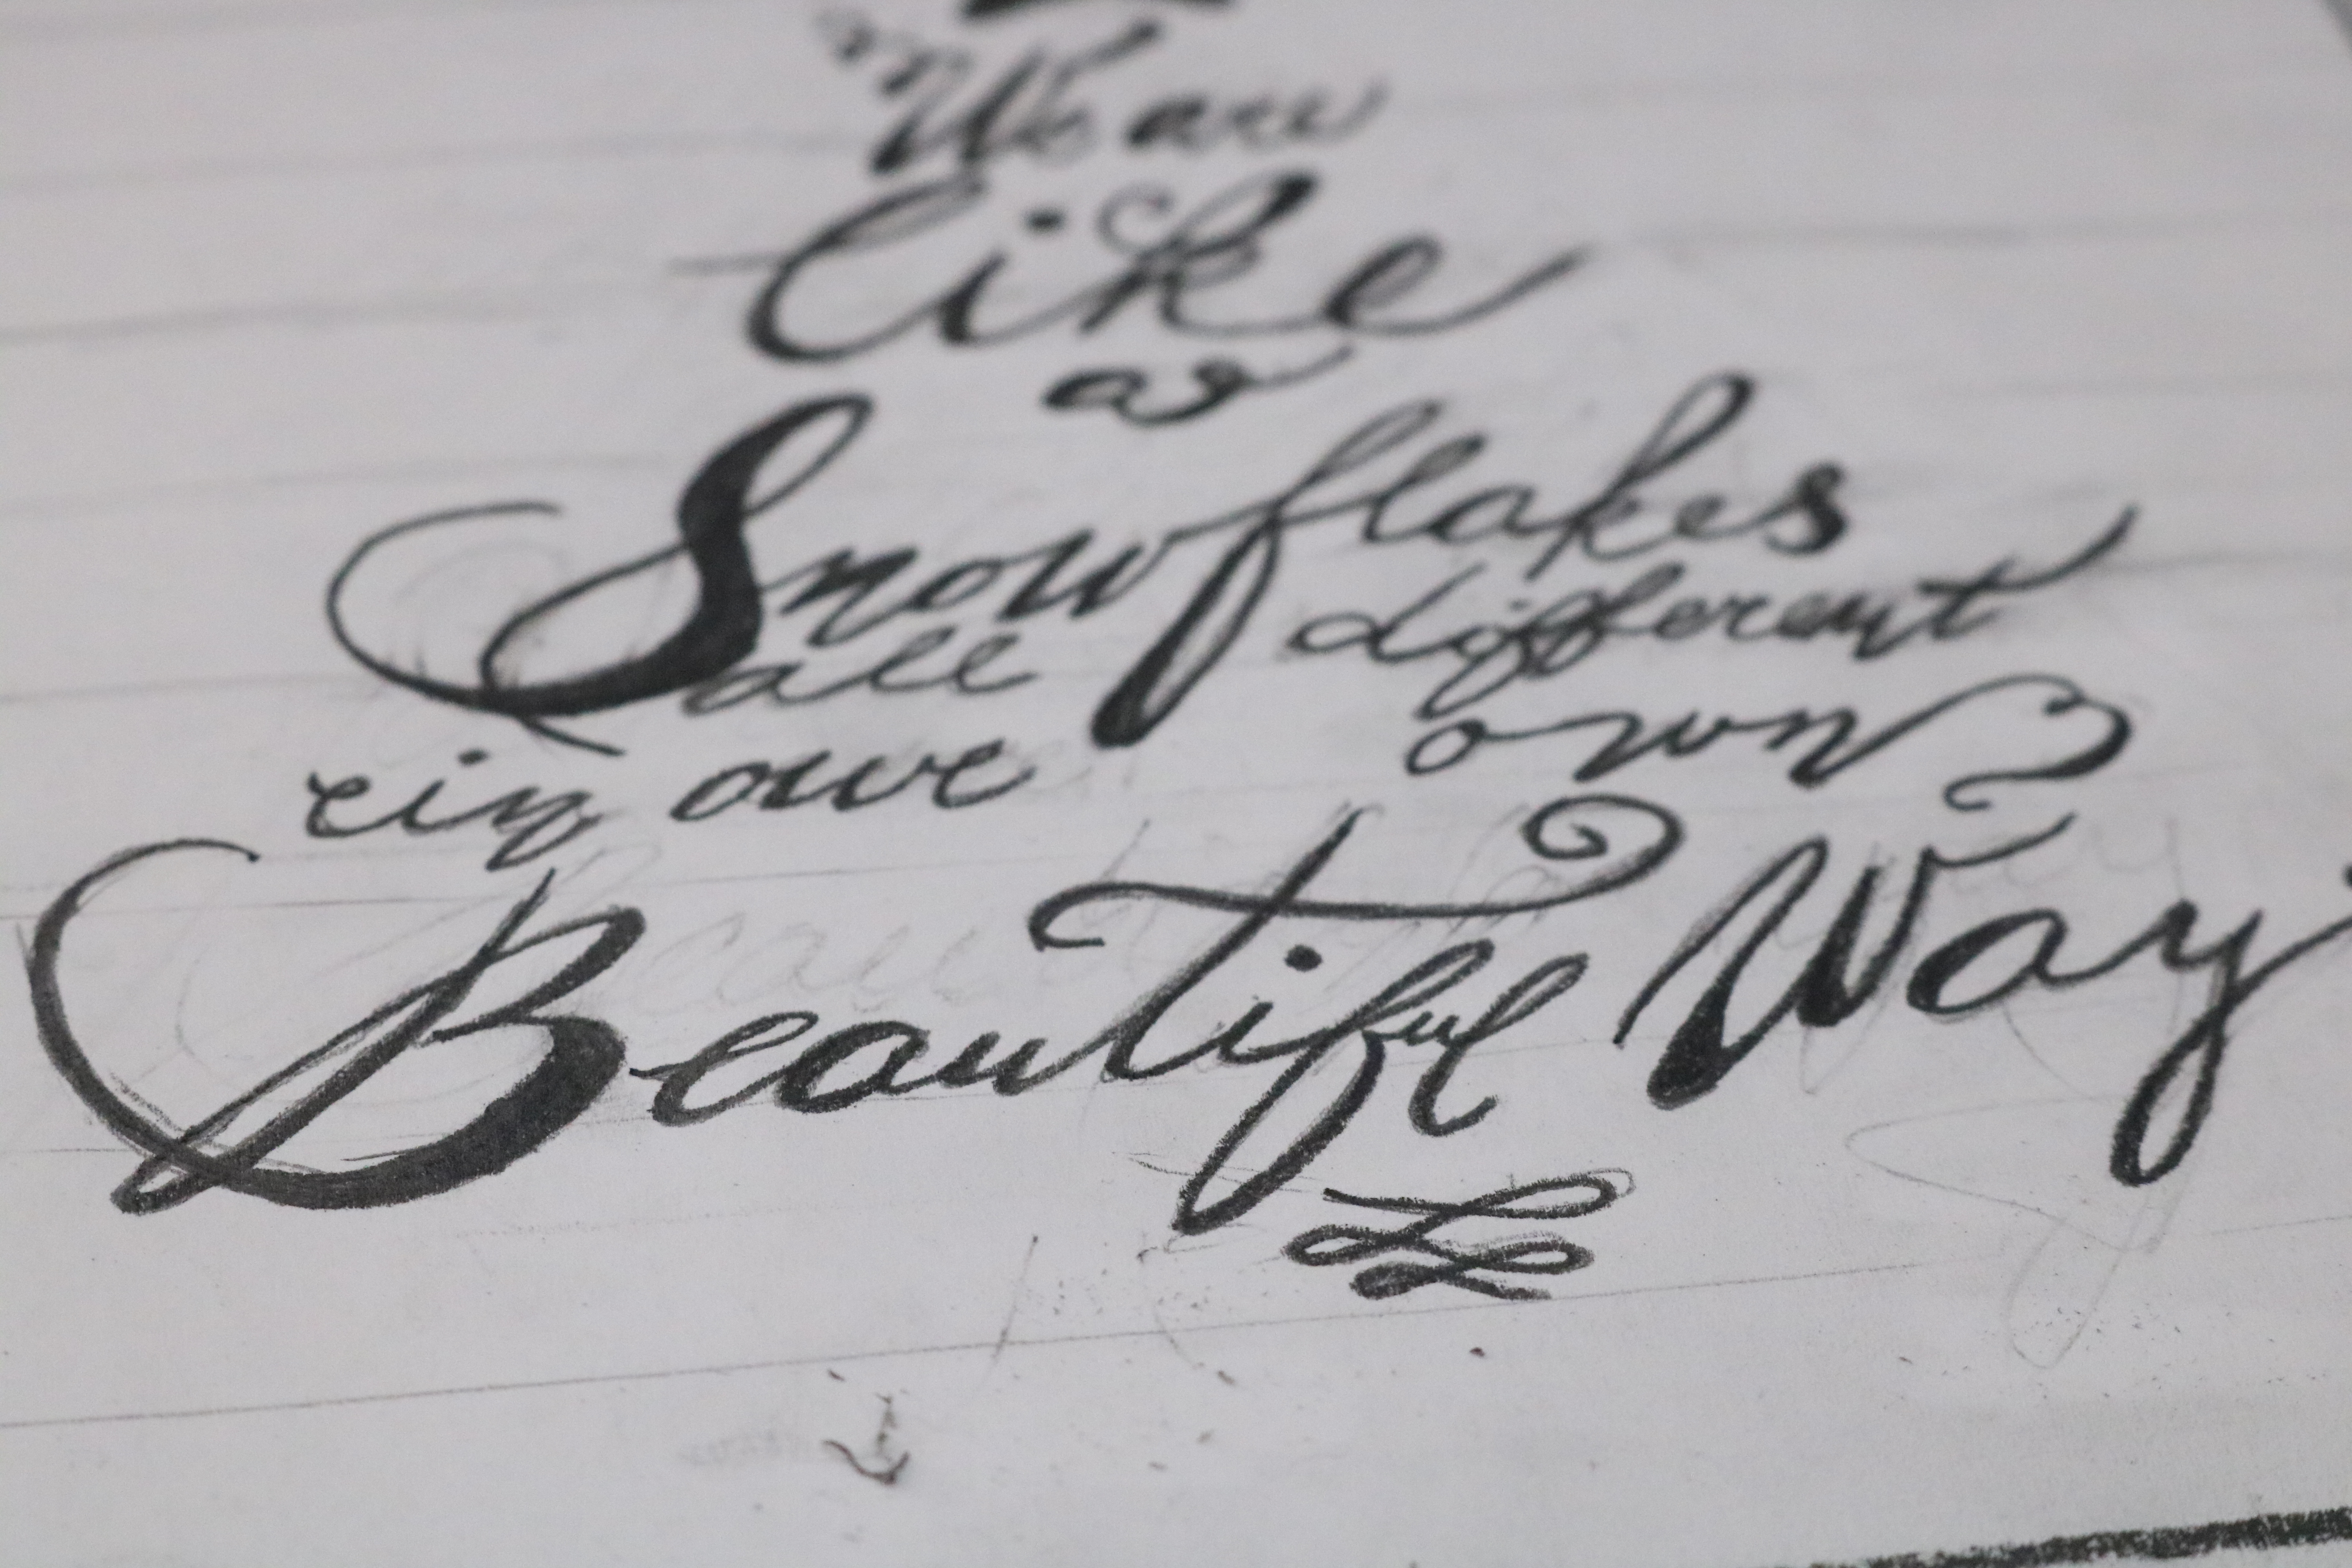 "We are
like
as
Snowflakes
all different
in owe own
Beautiful Way